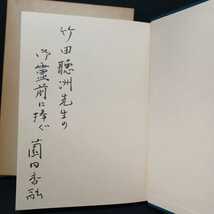 竹田聽洲先生の
御靈前に捧ぐ
薗田香融